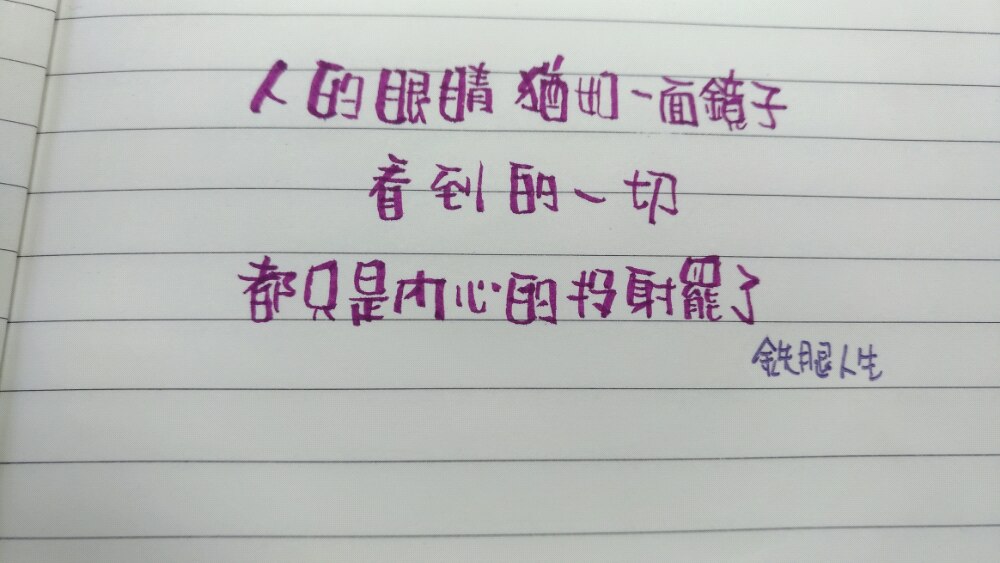 人的眼睛猶如一面鏡子
看到的一切
都只是內心的投射罷了
鉄腿人生